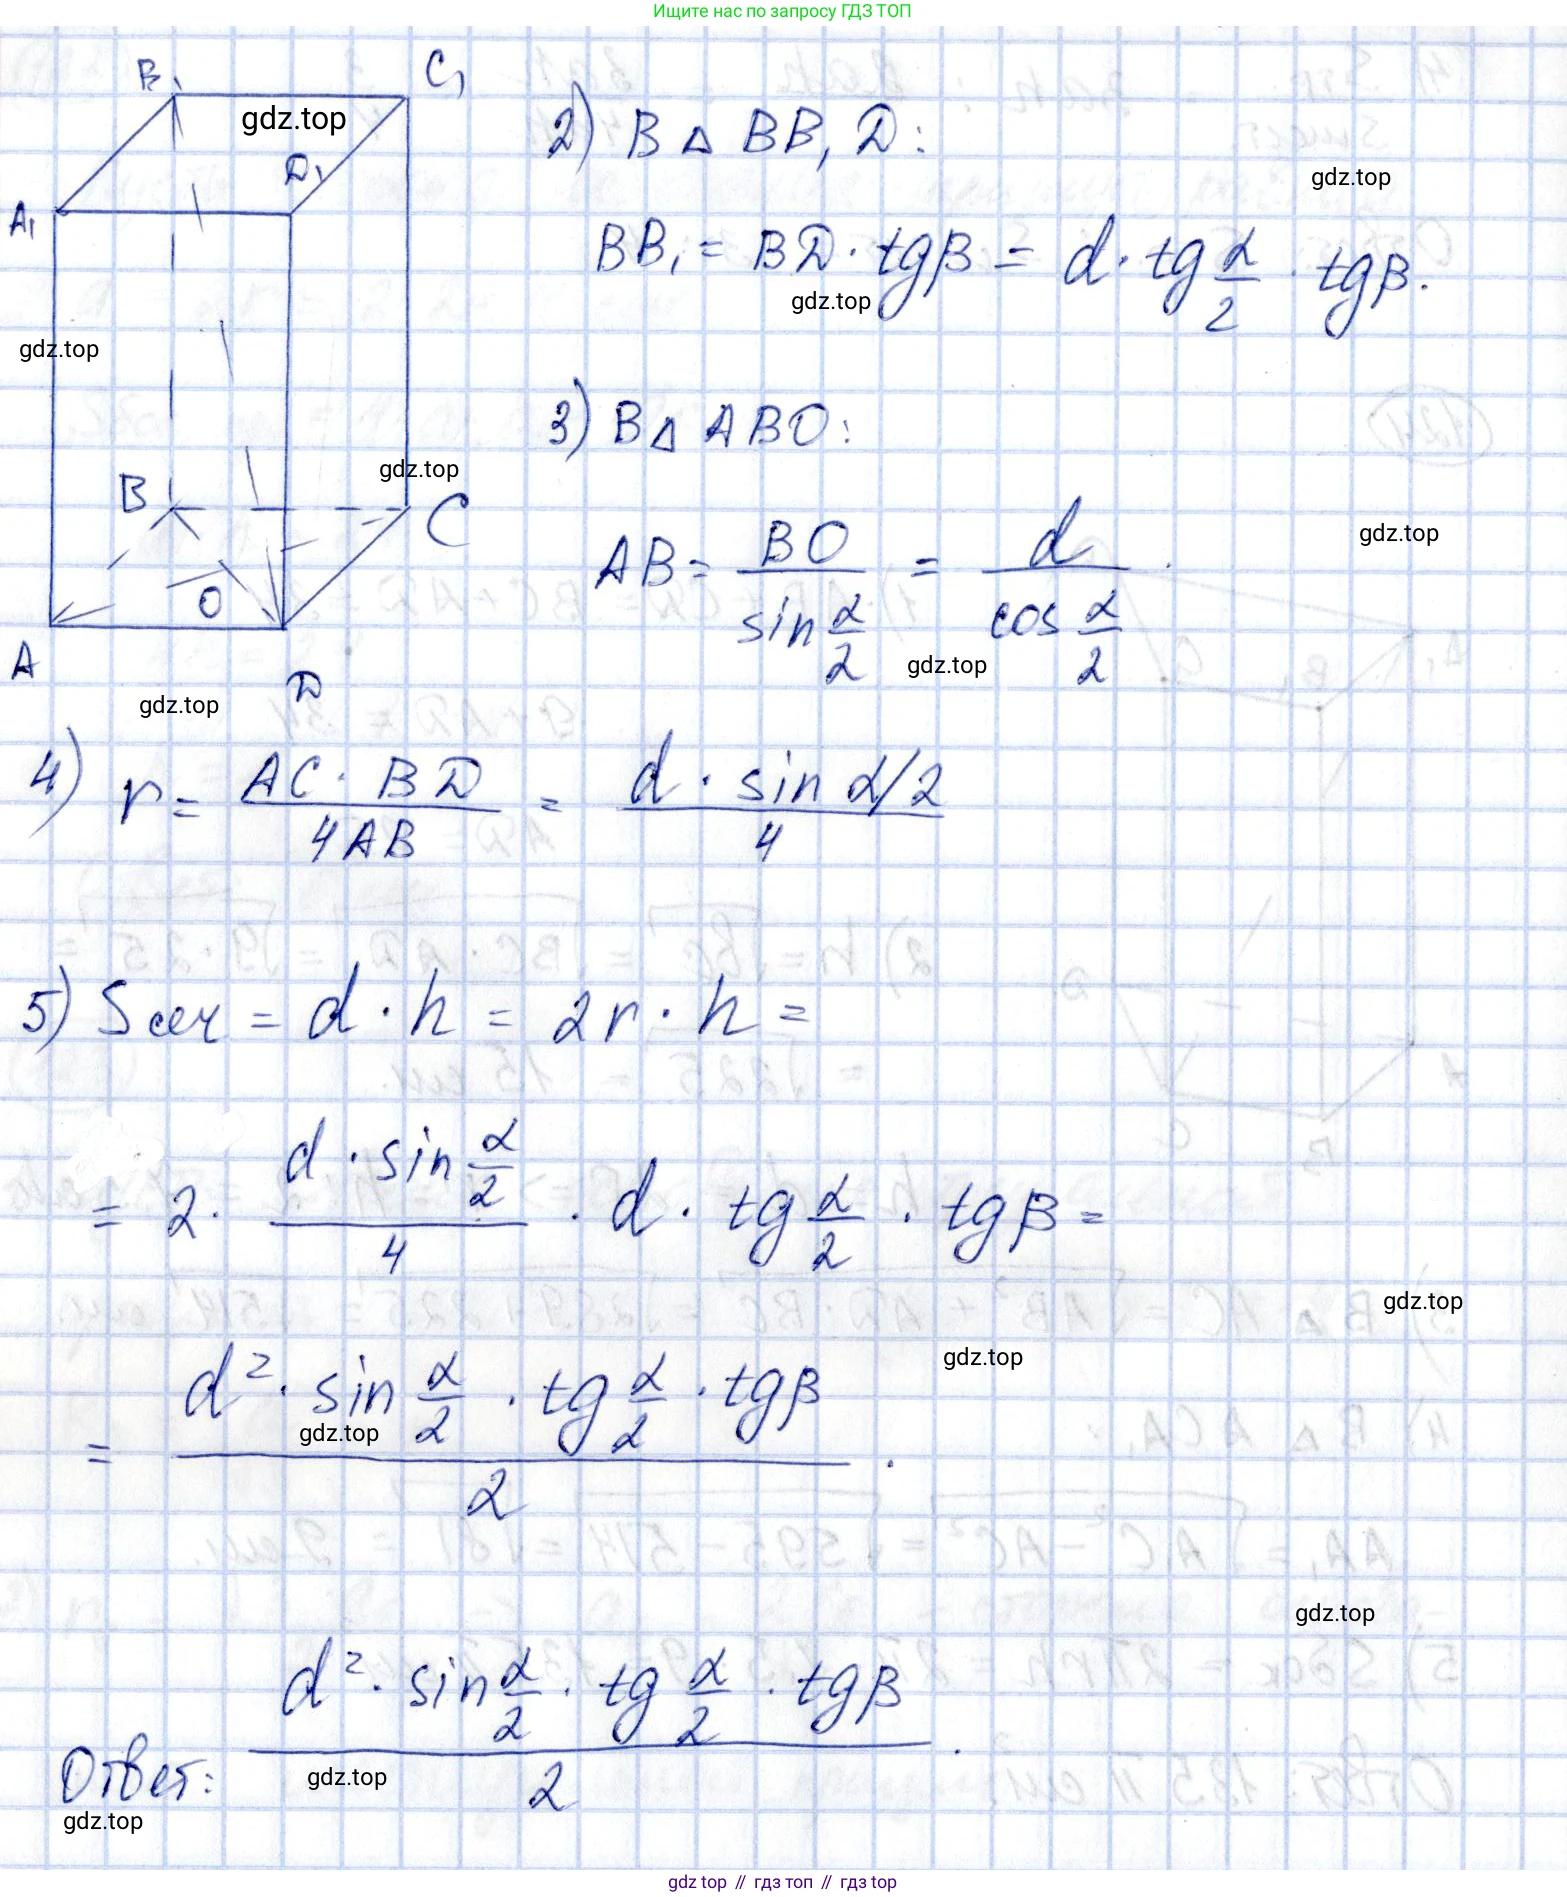 Ищите нас по запросу ГДЗ ТОП
B₁ C₁
gdz.top
D₁
A₁
2) В △ BB₁D:
gdz.top
BB₁ = BD · tgβ = d · tg α/2 · tgβ.
gdz.top
gdz.top
3) В △ ABO:
gdz.top
B C
O
A D
gdz.top
AB = BO / sin α/2 = d / cos α/2.
gdz.top
gdz.top
gdz.top
4) r = AC · BD / 4AB = d · sin α/2 / 4
5) Sсеч = d · h = 2r · h =
= 2 · d · sin α/2 / 4 · d · tg α/2 · tgβ =
gdz.top
gdz.top
= d² · sin α/2 · tg α/2 · tgβ / 2.
gdz.top
gdz.top
Ответ: d² · sin α/2 · tg α/2 · tgβ / 2.
gdz.top
gdz.top
gdz top // гдз топ // гдз top